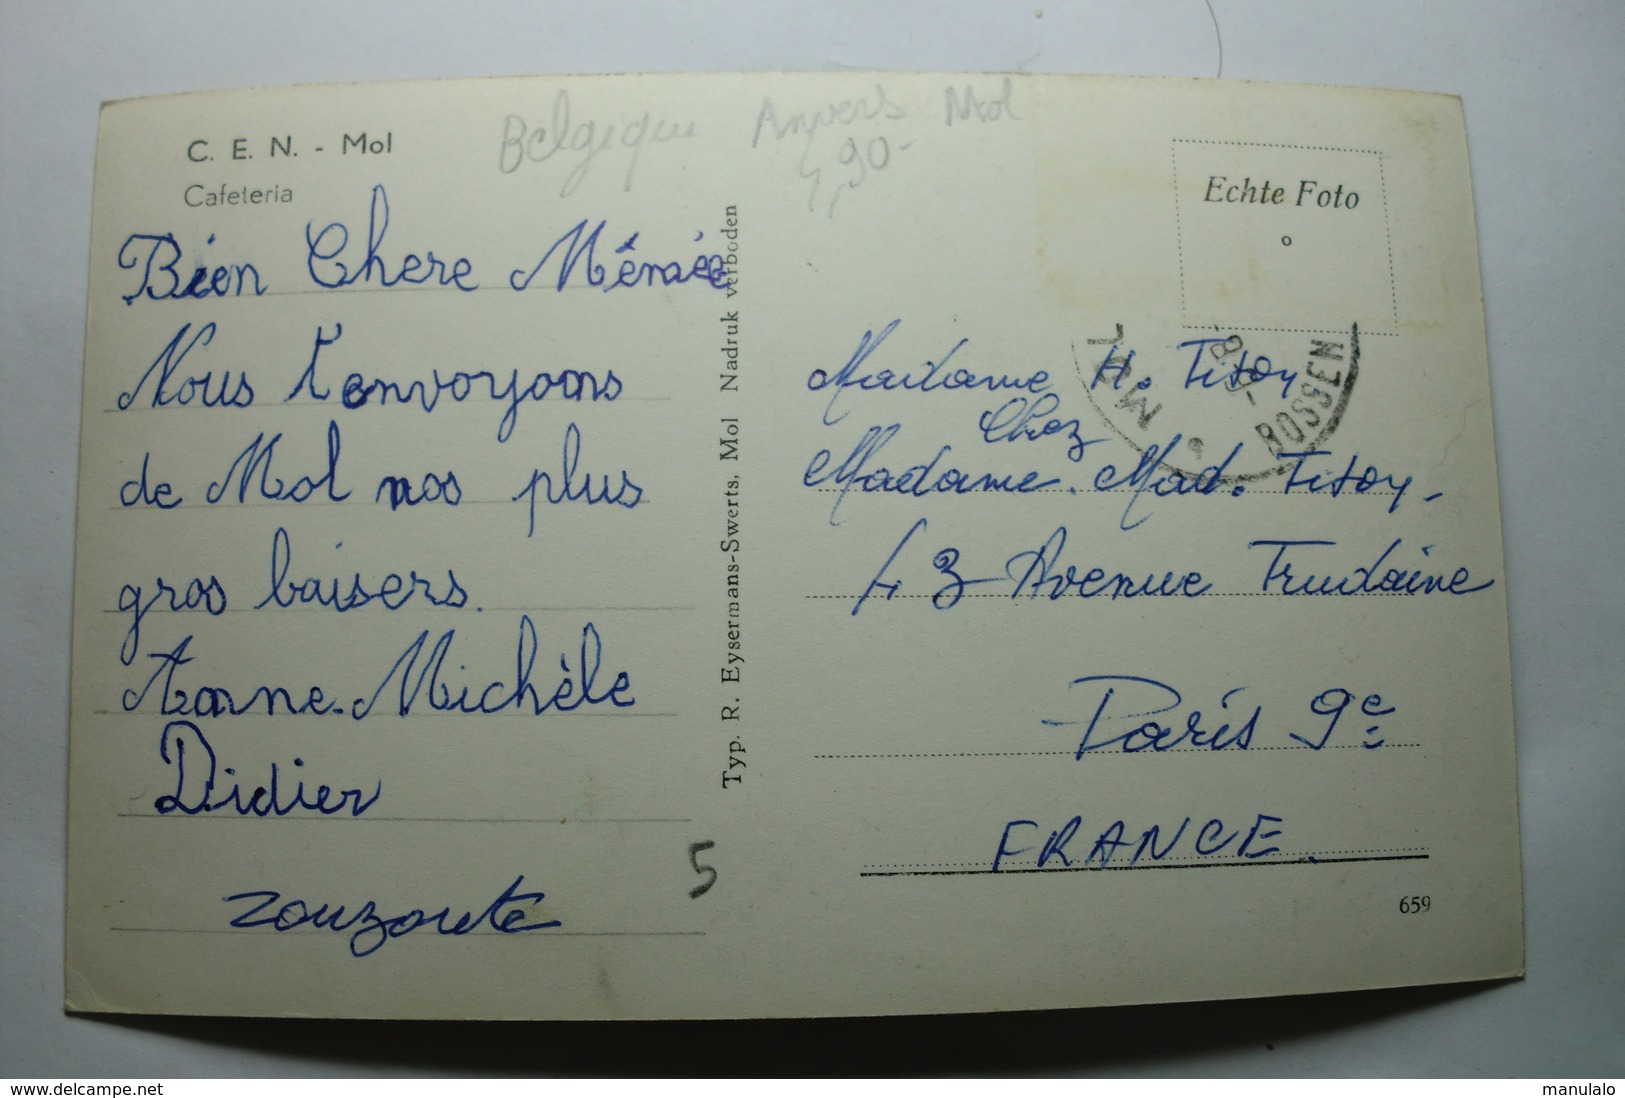 C. E. N. - Mol
Cafeteria
Belgique Anvers Mol
1,90-
Bien Chere Mémée
Nous t'envoyons
de Mol nos plus
gros baisers.
Anne-Michèle
Didier
zouzoute
5
Typ. R. Eysermans-Swerts, Mol Nadruk verboden
Echte Foto
MOL
ROSSEN
Madame H. Titoy
Chez
Madame. Mad. Titoy-
43 Avenue Trudaine
Paris 9e
FRANCE.
659
www.delcampe.net
manulalo